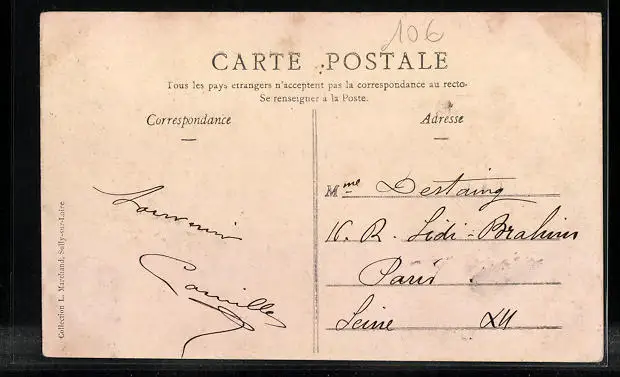 106
CARTE POSTALE
Tous les pays etrangers n'acceptent pas la correspondance au recto-
Se renseigner à la Poste.
Correspondance
Adresse
Souvenir
Camille
Mme Destaing
16. R. Sidi-Brahim
Paris.
Seine XII
Collection L. Marchand, Sully-sur-Loire